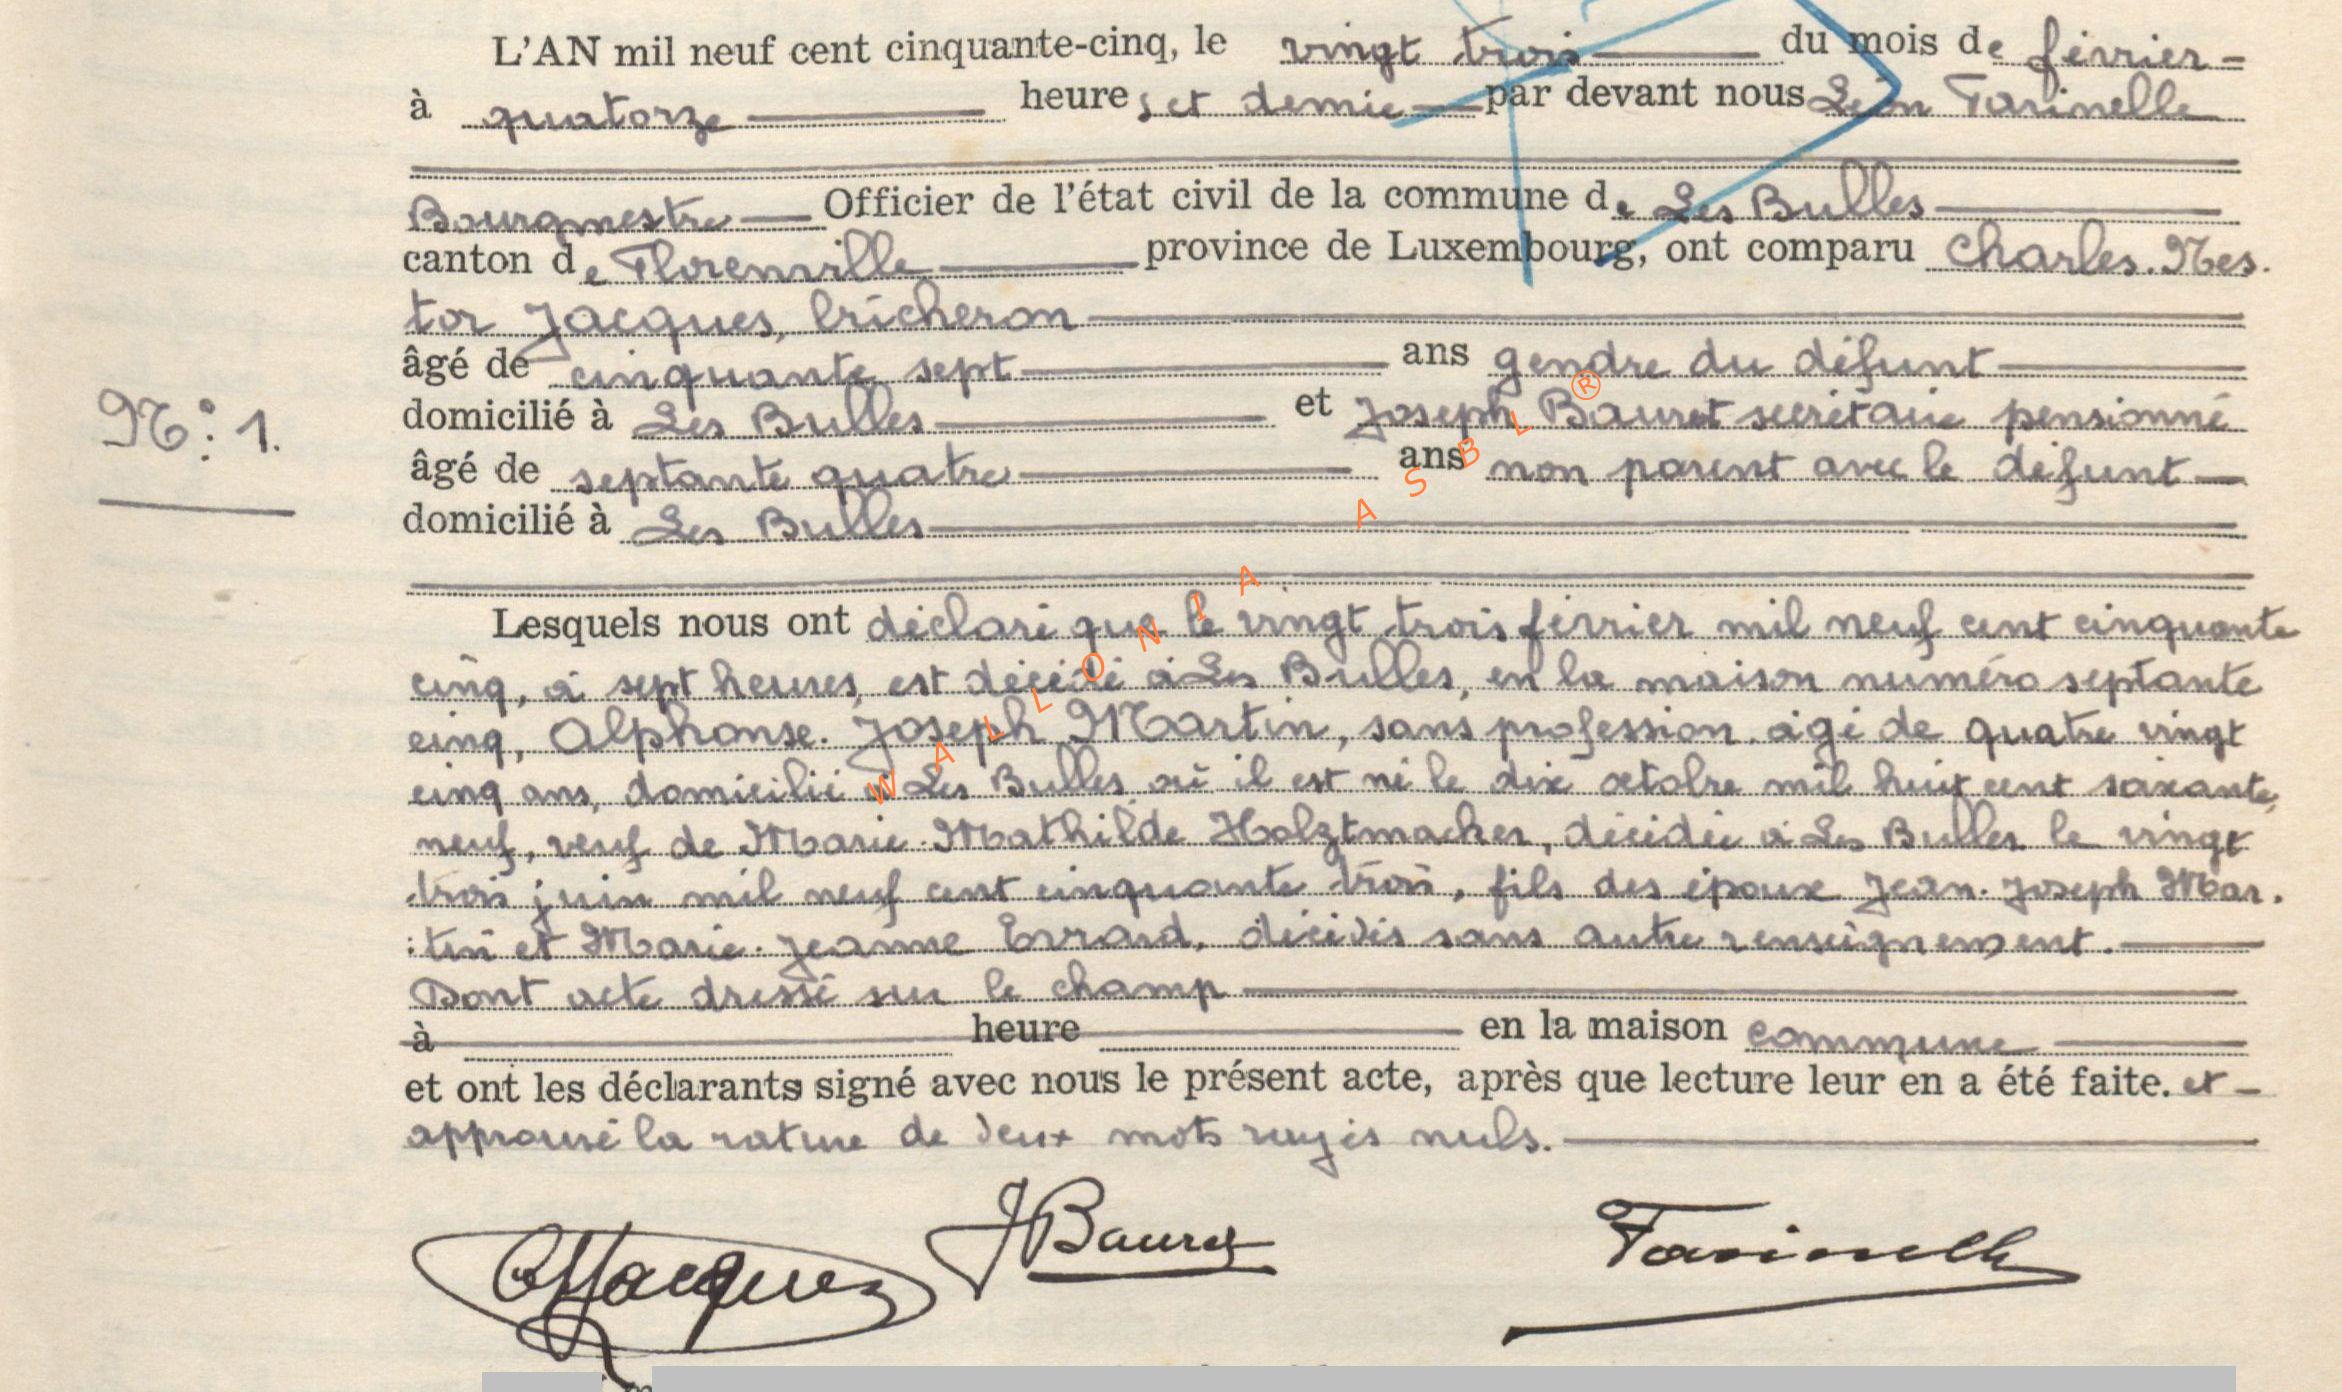 L'AN mil neuf cent cinquante-cinq, le vingt trois du mois de février
à quatorze heures et demie par devant nous Léon Farinelle
Bourgmestre Officier de l'état civil de la commune de Les Bulles
canton de Florenville province de Luxembourg, ont comparu Charles. Nes.
tor Jacques, bûcheron
âgé de cinquante sept ans gendre du défunt
domicilié à Les Bulles et Joseph Bauret secrétaire pensionné
N°: 1.
âgé de septante quatre ans non parent avec le défunt
domicilié à Les Bulles
Lesquels nous ont déclaré que le vingt trois février mil neuf cent cinquante
cinq, à sept heures, est décédé à Les Bulles, en la maison numéro septante
cinq, Alphonse. Joseph Martin, sans profession. âgé de quatre vingt
cinq ans, domicilié à Les Bulles où il est né le dix octobre mil huit cent soixante
neuf, veuf de Marie. Mathilde Holztmacher, décédée à Les Bulles le vingt
trois juin mil neuf cent cinquante trois, fils des époux Jean. Joseph Mar.
:tin et Marie. Jeanne Evrard, décédés sans autre renseignement.
Dont acte dressé sur le champ
à heure en la maison commune
et ont les déclarants signé avec nous le présent acte, après que lecture leur en a été faite. et
approuvé la rature de deux mots rayés nuls.
Jacques JBauret Farinelle
WALLONIA ASBL ®